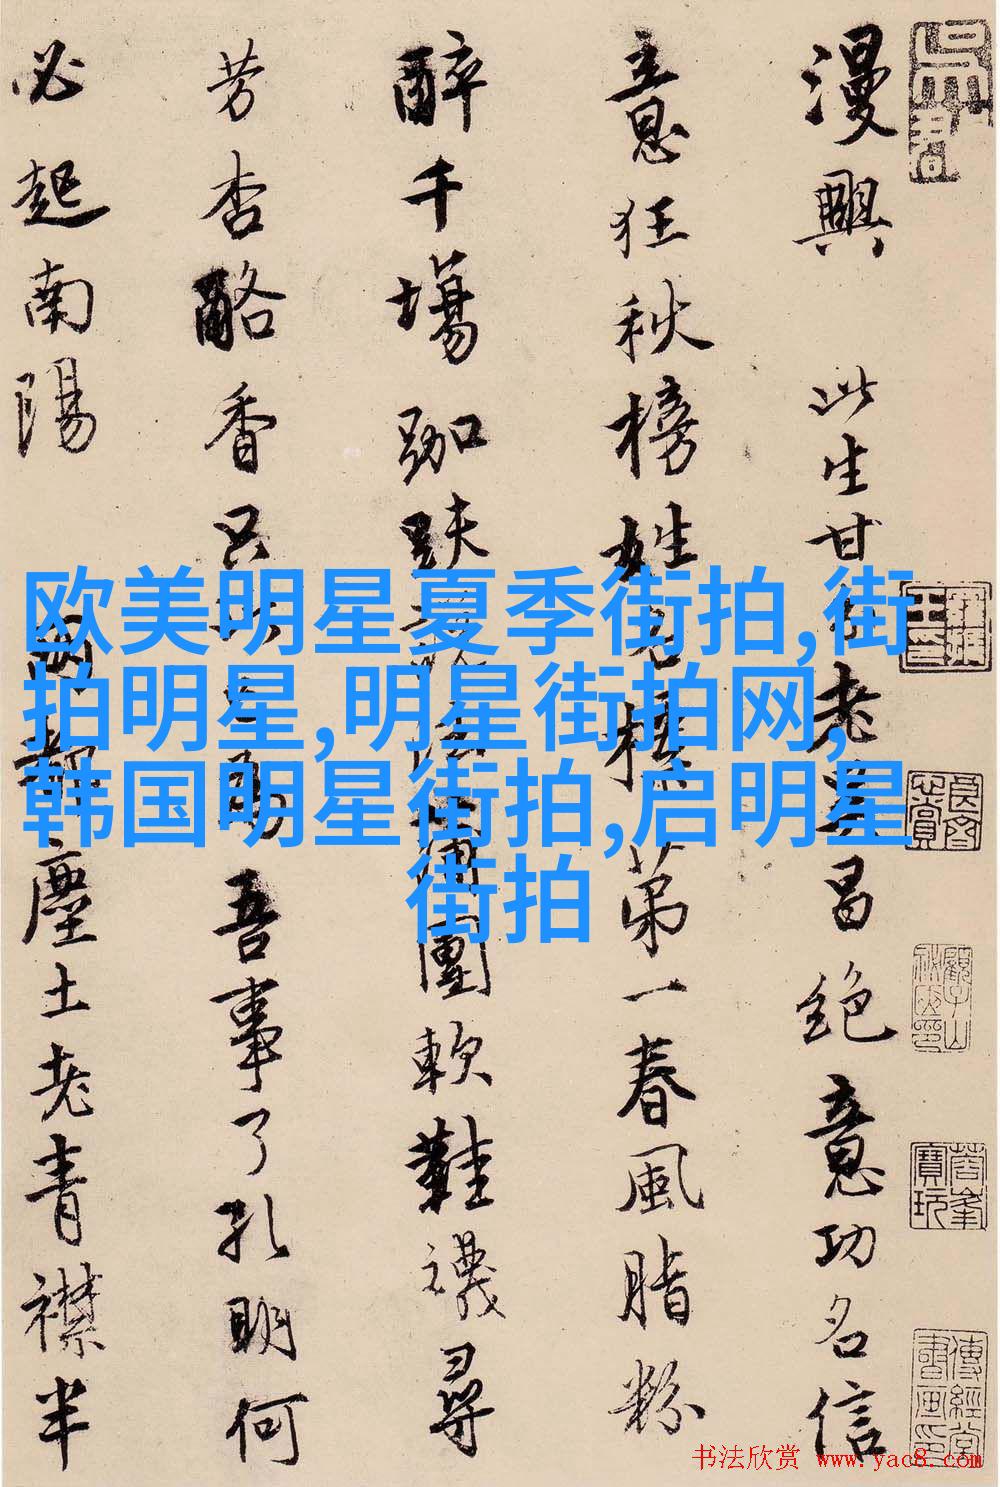 漫興 此生甘分老吳昌絕意功名信
意狂秋榜姓名標第一春風脂粉
醉千場跏趺說法蒲團軟鞋襪尋
芳杏酪香只此便為吾事了孔明何
必起南陽 兩都塵土老青襟半
欧美明星夏季街拍,街
拍明星,明星街拍网,
韩国明星街拍,启明星
街拍
书法欣赏 www.yac8.com